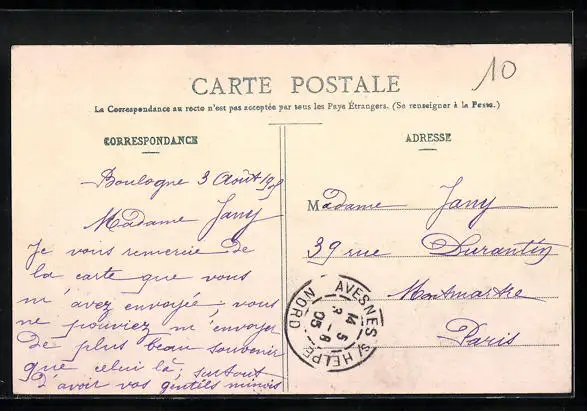 10
CARTE POSTALE
La Correspondance au recto n'est pas acceptée par tous les Pays Étrangers. (Se renseigner à la Poste.)
CORRESPONDANCE
Boulogne 3 Août 1905
Madame Jany
Je vous remercie de
la carte que vous
m'avez envoyée; vous
ne pouviez m'envoyer
de plus beau souvenir
que celui là; surtout
d'avoir vos gentils minois
ADRESSE
Madame Jany
39 rue Durantin
Montmartre
Paris
AVESNES S/ HELPE
NORD